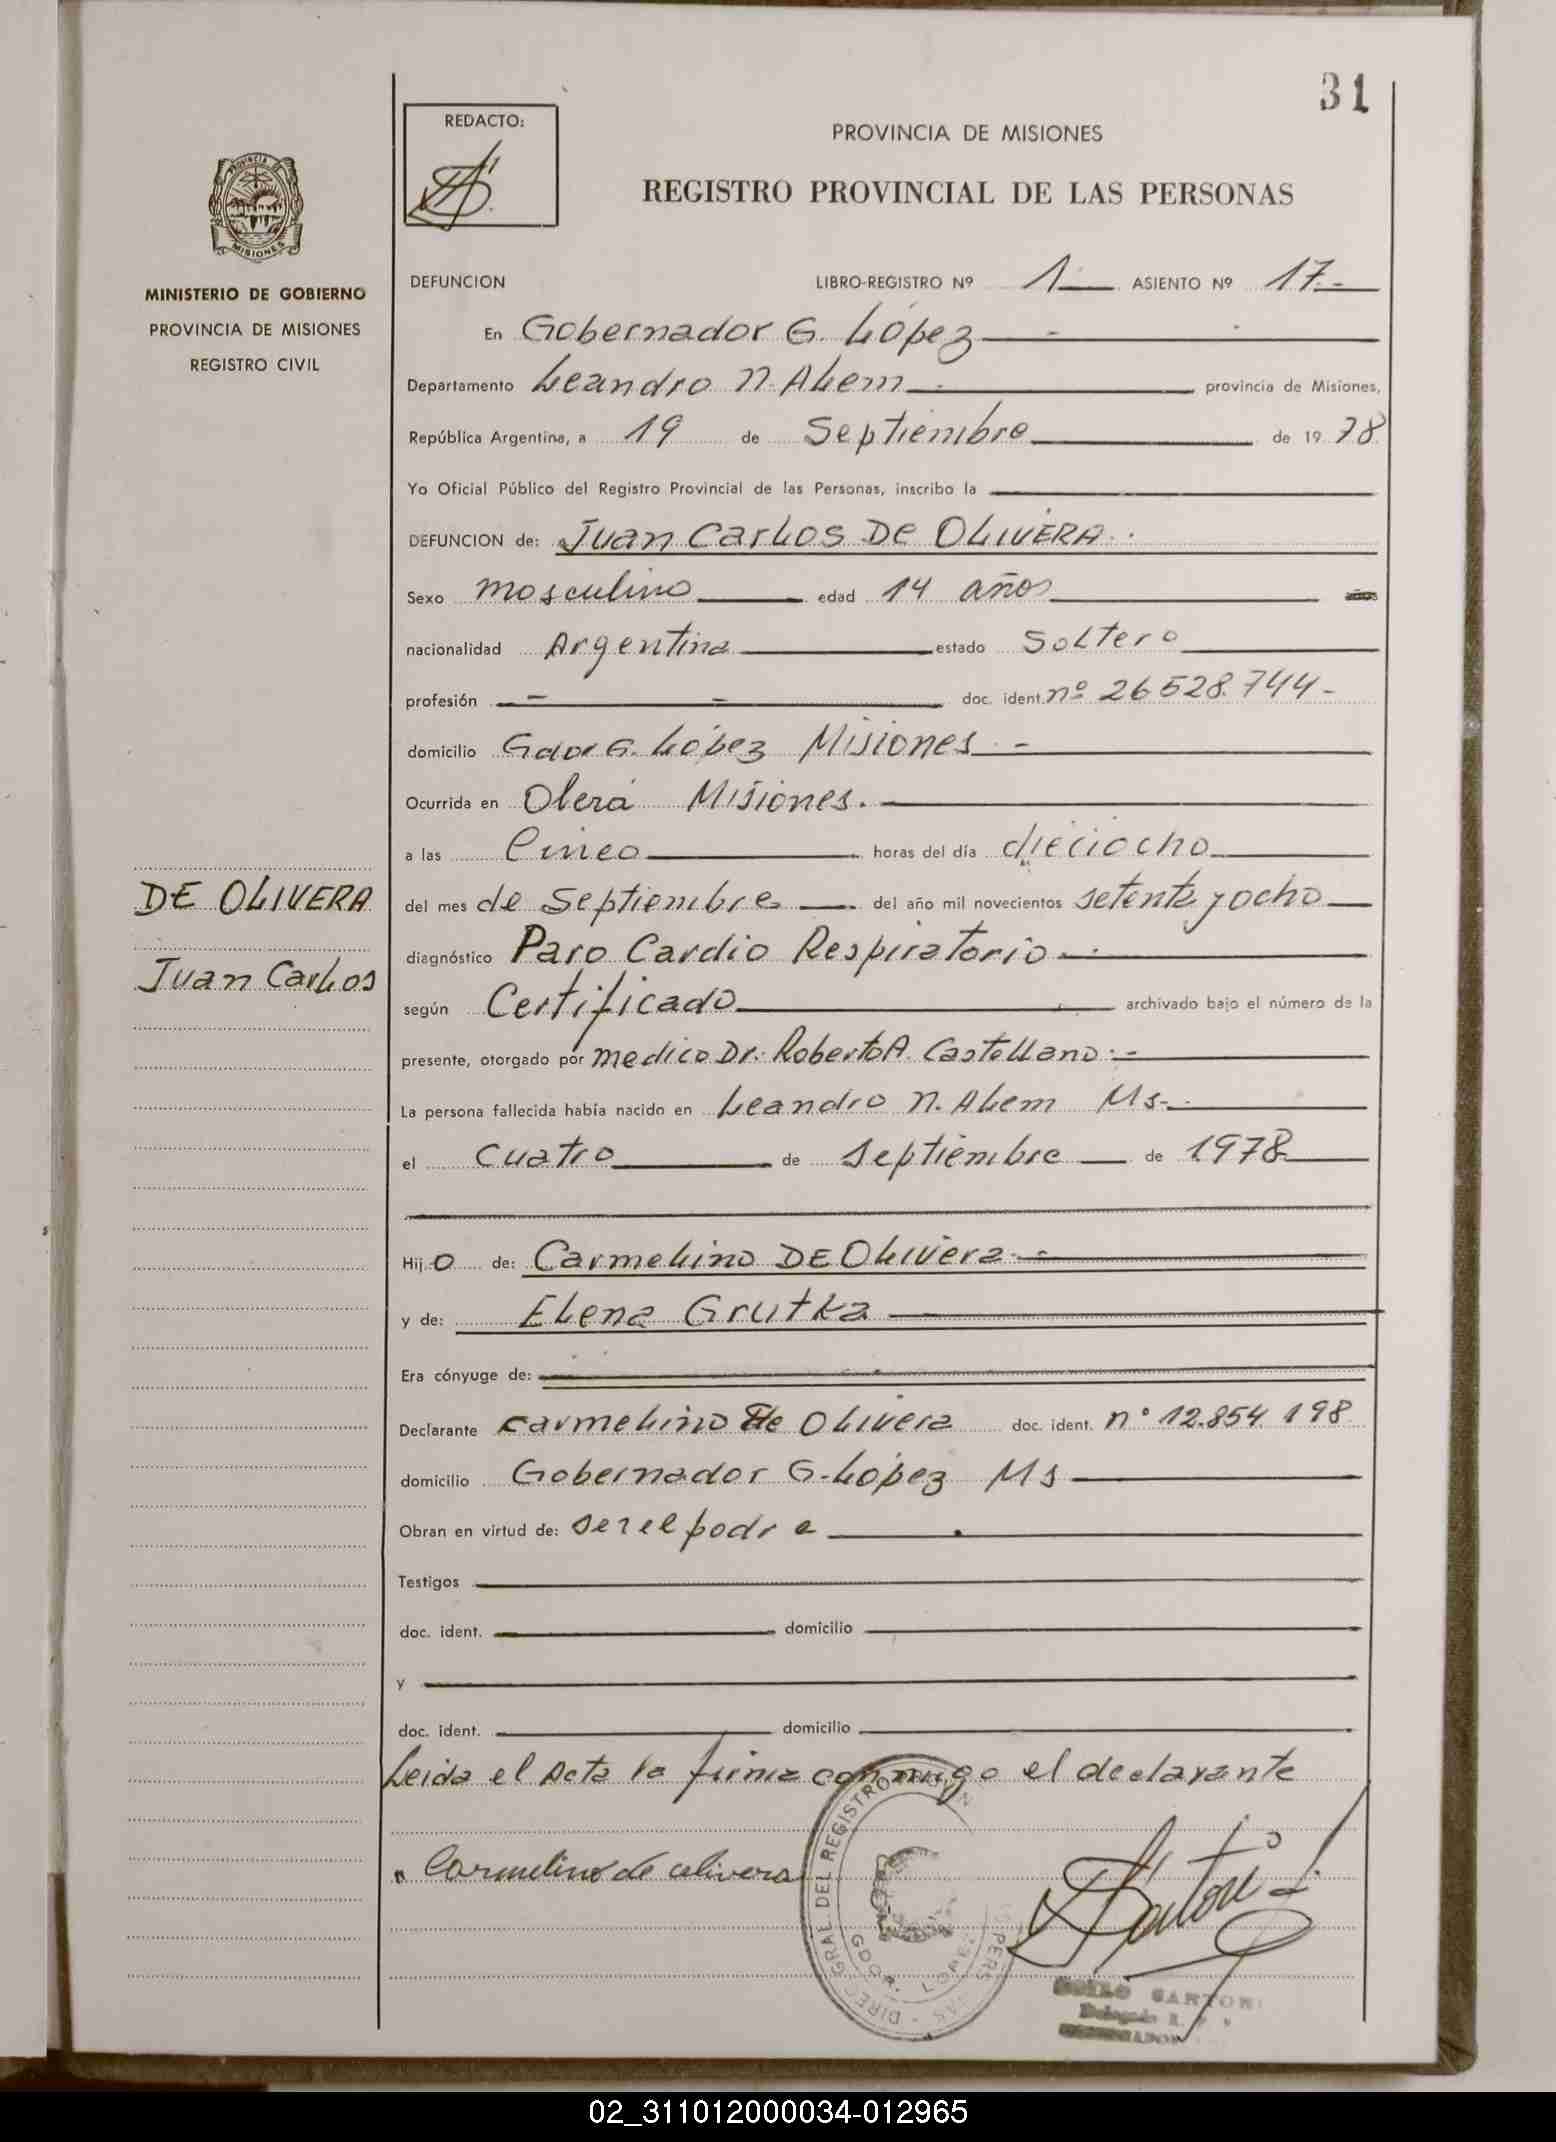 31
REDACTO:
PROVINCIA DE MISIONES
REGISTRO PROVINCIAL DE LAS PERSONAS
PROVINCIA DE MISIONES
MINISTERIO DE GOBIERNO
PROVINCIA DE MISIONES
REGISTRO CIVIL
DE OLIVERA
Juan Carlos
DEFUNCION LIBRO-REGISTRO Nº 1 ASIENTO Nº 17.-
En Gobernador G. López -
Departamento Leandro N. Alem - provincia de Misiones,
República Argentina, a 19 de Septiembre de 19 78
Yo Oficial Público del Registro Provincial de las Personas, inscribo la
DEFUNCION de: Juan Carlos De OLIVERA.
Sexo Masculino edad 14 años años
nacionalidad Argentina estado Soltero
profesión - - doc. ident. nº 26528.744-
domicilio Gdor G. López Misiones -
Ocurrida en Oberá Misiones.
a las Cinco horas del día dieciocho
del mes de Septiembre del año mil novecientos setenta y ocho
diagnóstico Paro Cardio Respiratorio
según Certificado archivado bajo el número de la
presente, otorgado por medico Dr. Roberto A. Castellano.-
La persona fallecida había nacido en Leandro N. Alem Ms-
el cuatro de Septiembre de 1978
Hij o de: Carmelino DE Olivera -
y de: Elena Grutka
Era cónyuge de:
Declarante Carmelino de Olivera doc. ident. nº 12.854.198
domicilio Gobernador G. López Ms
Obran en virtud de: ser el padre
Testigos
doc. ident. domicilio
y
doc. ident. domicilio
Leida el Acta la firma conmigo el declarante
Carmelino de olivera
DIREC. GRAL. DEL REGISTRO
GDOR. LOPEZ
SARTORI
Delegado
02_311012000034-012965